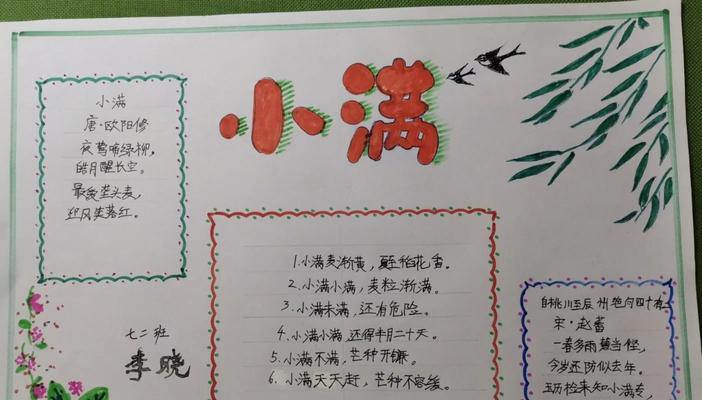 小满
小满
唐·欧阳修
夜莺啼绿柳，
皓月醒长空。
最爱垄头麦，
迎风笑落红。
七二班
李晓
1.小满麦渐黄，稻花香。
2.小满小满，麦粒渐满。
3.小满未满，还有危险。
4.小满小满，还得半月二十天。
5.小满不满，芒种开镰。
6.小满天天赶，芒种不容缓。
自桃川至辰州绝句四十有
宋·赵蕃
一春多雨慧当悭，
今岁还防似去年。
玉历检来知小满专，